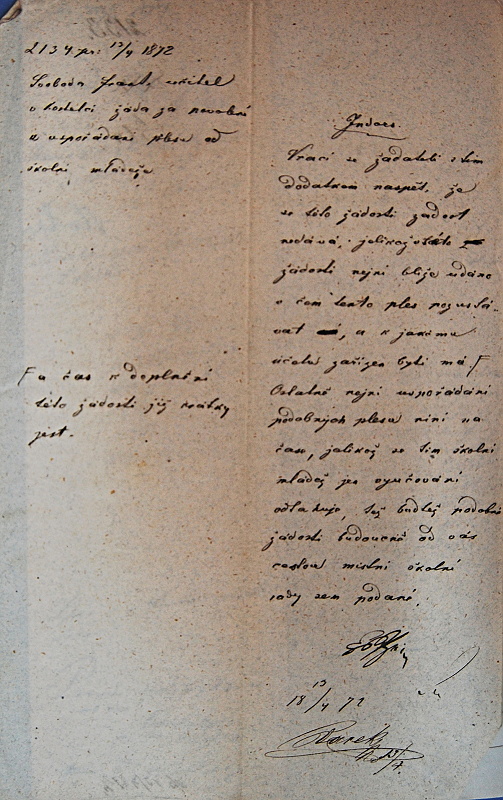 2134 pr: 13/4 1872
Svoboda Frant. učitel
v Kostelci žádá za povolení
k uspořádání plesu od
školní mládeže
F a čas k doplnění
této žádosti již krátký
jest.
Indors.
Vrací se žadateli s tím
dodatkem nazpět, že
se této žádosti zadost
nedává, jelikož v této
žádosti nejní blíže udáno
v čem tento ples pozustá-
vat má, a k jakému
účelu zařízen býti má. F
Ostatně nejní uspořádání
podobných plesu nyní na
čase, jelikož se tím školní
mládež jen vyučování
odtahuje, též buďtež podobné
žádosti budoucně od vás
cestou místní školní
rady sem podané.
18 13/4 72